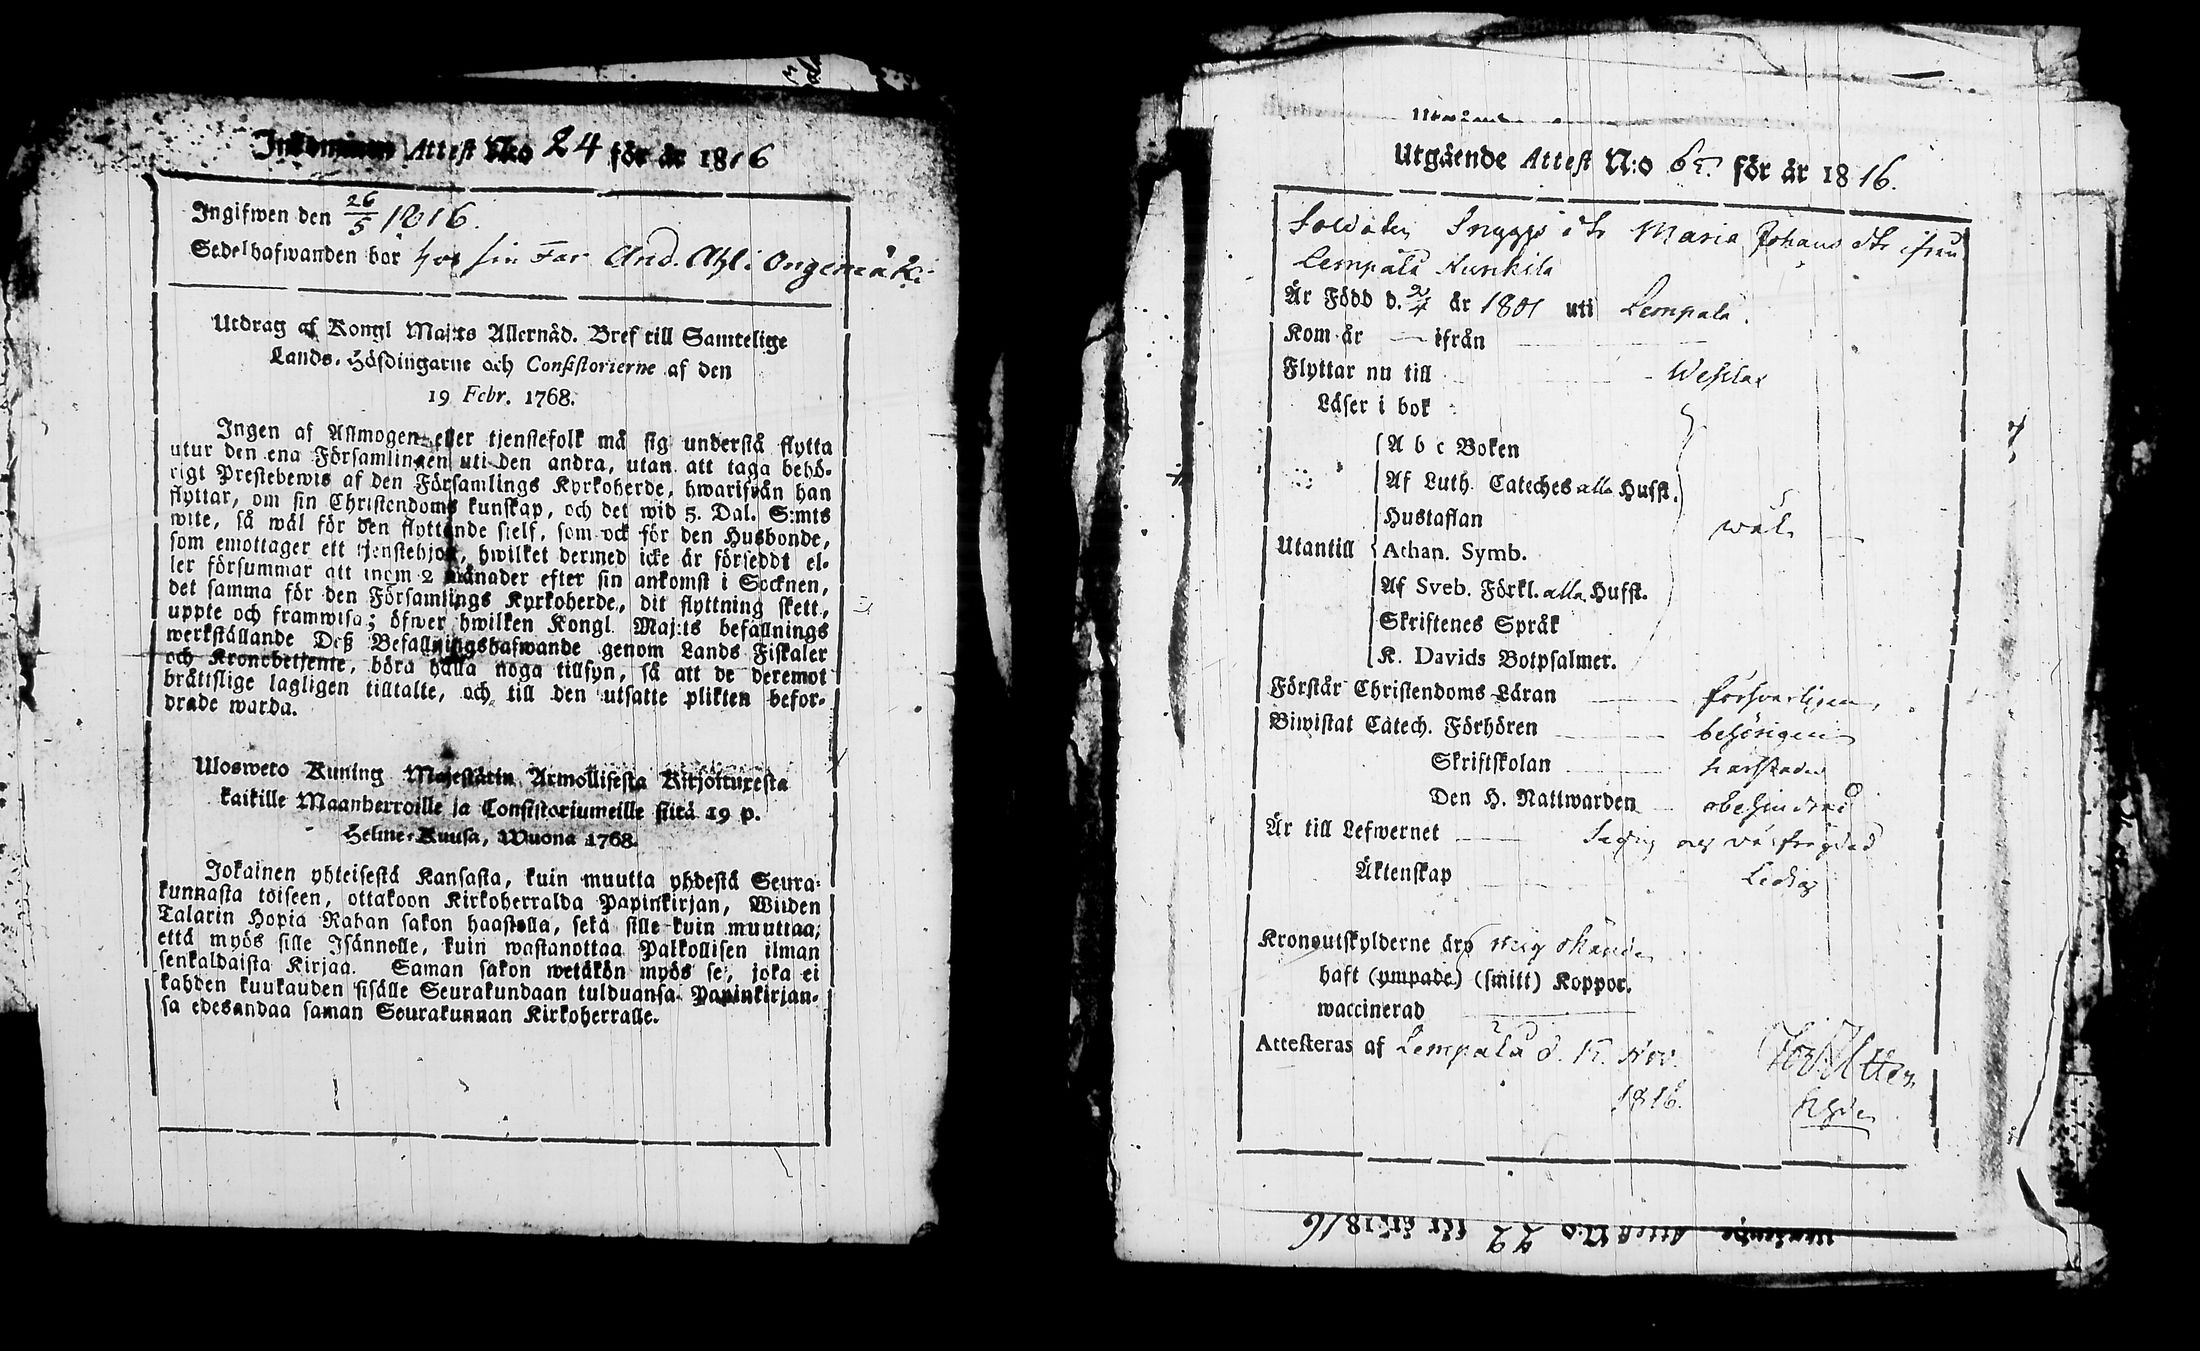 Inkommen Attest N:o 24 för år 1816
Ingifwen den 26/5 1816.
Sedelhafwanden bor hos sin Far And. Ahl i Ongemäki
Utdrag af Kongl Maj:ts Allernåd. Bref till Samtelige
Lands-Höfdingarne och Consistorierne af den
19 Febr. 1768.
Ingen af Allmogen eller tjenstefolk må sig understå flytta
utur den ena Församlingen uti den andra, utan att taga behö-
rigt Prestebewis af den Församlings Kyrkoherde, hwarifrån han
flyttar, om sin Christendoms kunskap, och det wid 5. Dal. S:mts
wite, så wäl för den flyttande sielf, som ock för den Husbonde,
som emottager ett tjenstehjon, hwilket dermed icke är försedt el-
ler försummar att inom 2 månader efter sin ankomst i Socknen,
det samma för den Församlings Kyrkoherde, dit flyttning skett,
uppte och framwisa; öfwer hwilken Kongl. Maj:ts befallnings
werkställande Deß Befallningshafwande genom Lands Fiskaler
och Kronobetjente, böra hålla noga tillsyn, så att de deremot
bråttslige lagligen tilltalte, och till den utsatte plikten befor-
drade warda.
Ulosweto Kuning Majestätin Armollisesta Kirjoituxesta
kaikille Maanherroille ja Consistoriumeille siitä 19 p.
Helme-Kuusa, Wuona 1768.
Jokainen yhteisestä Kansasta, kuin muutta yhdestä Seura-
kunnasta toiseen, ottakoon Kirkoherralda Papinkirjan, Wiiden
Talarin Hopia Rahan sakon haastolla, sekä sille kuin muuttaa,
että myös sille Isännelle, kuin wastanottaa Palkollisen ilman
senkaldaista Kirjaa. Saman sakon wetäkön myös se, joka ei
kahden kuukauden sisälle Seurakundaan tulduansa Papinkirjan-
sa edesandaa saman Seurakunnan Kirkoherralle.
Utgående Attest N:o 65. för år 1816.
Soldaten Snyggs dtr Maria Johans dtr ifrån
Lempälä Kurikila
Är Född d. 2/4 år 1801 uti Lempälä.
Kom år — ifrån
Flyttar nu till Wesilax
Läser i bok
A b c Boken
Af Luth. Cateches alla Hufst.
Hustaflan
wäl.
Utantill Athan. Symb.
Af Sveb. Förkl. alla Hufst.
Skriftenes Språk
K. Davids Botpsalmer.
Förstår Christendoms Läran försvarligen,
Biwistat Catech. Förhören behörigen
Skriftskolan
Den H. Nattwarden obehindrad
Är till Lefwernet Sedig och väl frägdad
Äktenskap Ledig
Kronoutskylderne äro mig
haft (ympade) (smitt) Koppor.
waccinerad
Attesteras af Lempälä d. 17. Nov.
1816.
Attest N:o 22 för år 1816